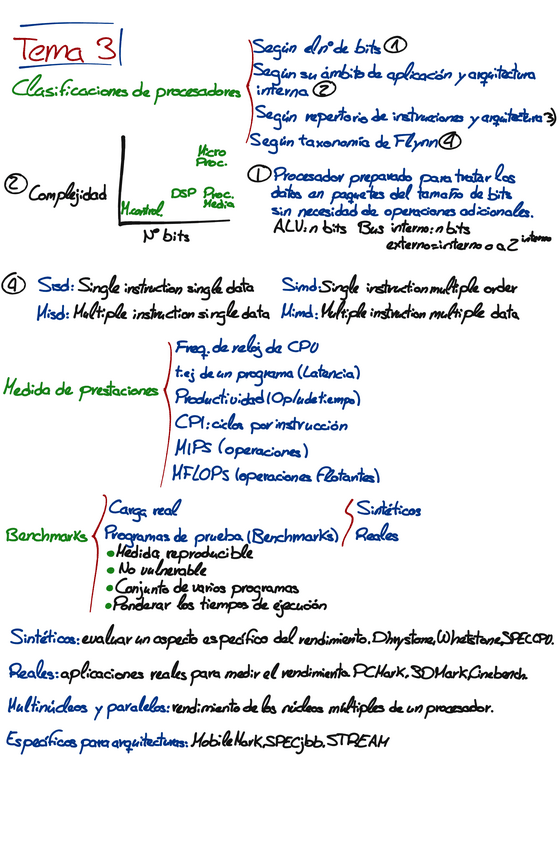 Tema 3
Clasificaciones de procesadores
Según el nº de bits ①
Según su ámbito de aplicación y arquitectura
interna ②
Según repertorio de instrucciones y arquitectura 3)
Según taxonomía de Flynn ④
② Complejidad
Micro
Proc.
DSP Proc.
Media
M.control.
Nº bits
① Procesador preparado para tratar los
datos en paquetes del tamaño de bits
sin necesidad de operaciones adicionales.
ALU: n bits Bus interno: n bits
externo=interno o a 2 interno
④ Sisd: Single instruction single data
Simd: Single instruction multiple order
Misd: Multiple instruction single data
Mimd: Multiple instruction multiple data
Medida de prestaciones
Freq. de reloj de CPU
t.ej de un programa (Latencia)
Productividad (Op/ud tiempo)
CPI: ciclos por instrucción
MIPS (operaciones)
MFLOPS (operaciones flotantes)
Benchmarks
Carga real
Programas de prueba (Benchmarks)
Sintéticos
Reales
• Medida reproducible
• No vulnerable
• Conjunto de varios programas
• Ponderar los tiempos de ejecución
Sintéticos: evaluar un aspecto específico del rendimiento. Dhrystone, Whetstone, SPECCPU.
Reales: aplicaciones reales para medir el rendimiento. PCMark, 3DMark, Cinebench.
Multinúcleos y paralelos: rendimiento de los núcleos múltiples de un procesador.
Específicos para arquitecturas: MobileMark, SPECjbb, STREAM